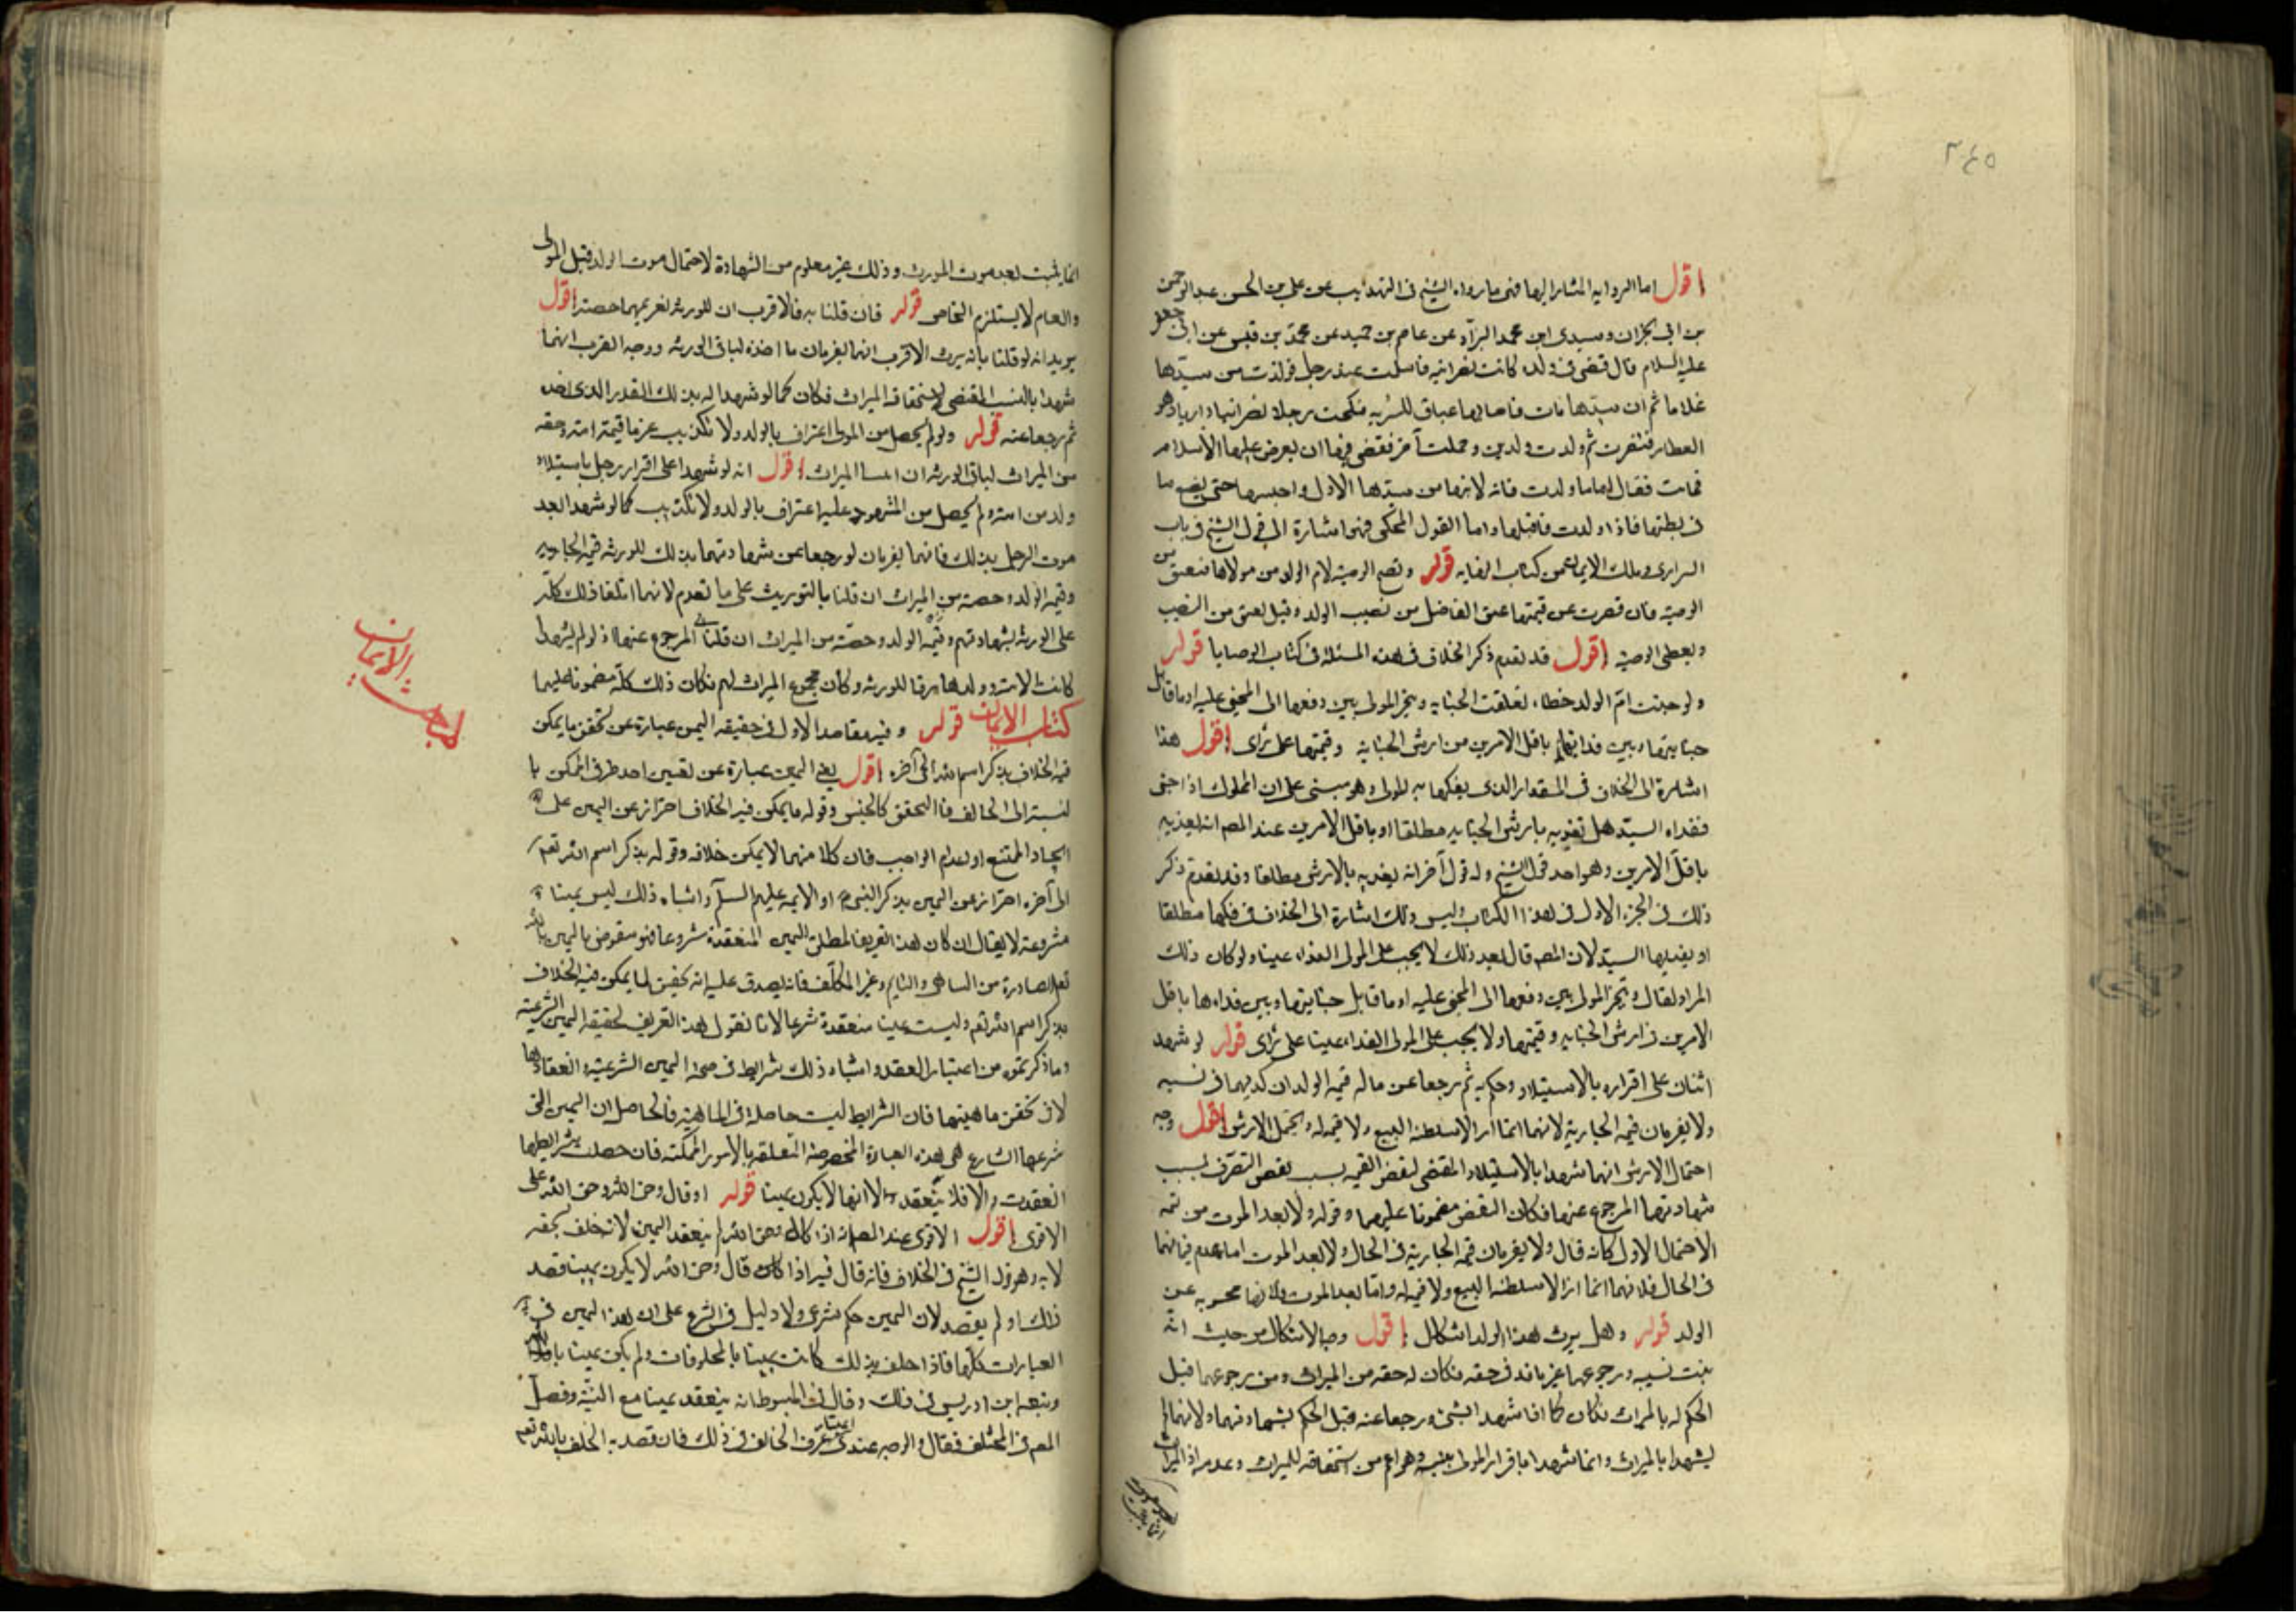 ٣٤٥
اقول اما الرواية المشار اليها فهى ما رواه الشيخ فى التهذيب عن على بن الحسن عبد الرحمن
بن ابى نجران وسندى ابن محمد البزاز عن عاصم بن حميد عن محمد بن قيس عن ابى جعفر
عليه السلام قال قضى فى ولدة كانت نصرانية فاسلمت عند رجل فولدت من سيدها
غلاما ثم ان سيدها مات فاصابها عتاق للسرية فنكحت رجلا نصرانيا داريا وهو
العطار فتنصرت ثم ولدت ولدين وحملت آخر فقضى فيها ان يعرض عليها الاسلام
فابت فقال اما ما ولدت فانه لابنها من سيدها الاول واحبسها حتى تضع ما
فى بطنها فاذا ولدت فاقتلها واما القول المحكى فهو اشارة الى قول الشيخ فى باب
السرارى وملك الايمان من كتاب النهاية قوله وتصح الوصية لام الولد من مولاها فتعتق من
الوصية فان قصرت عن قيمتها عتق الفاضل من نصيب الولد وقيل تعتق من النصيب
وتعطى الوصية اقول قد تقدم ذكر الخلاف فى هذه المسئلة فى كتاب الوصايا قوله
ولو جنت ام الولد خطاء تعلقت الجناية ويتخير المولى بين دفعها الى المجنى عليه او ما قابل
جنايتها وبين فدائها باقل الامرين من ارش الجناية وقيمتها على رأى اقول هذا
اشارة الى الخلاف فى المقدار الذى يفكها به المولى وهو مبنى على ان المملوك اذا جنى
ففداه السيد هل تفديه بارش الجناية مطلقا او باقل الامرين عند المص انه يفديه
باقل الامرين وهو احد قولى الشيخ وله قول آخر انه يفديه بالارش مطلقا وقد تقدم ذكر
ذلك فى الجزء الاول فى هذا الكتاب وليس ذلك اشارة الى الخلاف فى فكها مطلقا
او يفديها السيد لان المص قال بعد ذلك لا يجب على المولى الفداء عينا ولو كان ذلك
المراد لقال ويتخير المولى بين دفعها الى المجنى عليه او ما قابل جنايتها وبين فداءها باقل
الامرين من ارش الجناية وقيمتها ولا يجب على المولى الفداء عينا على رأى قوله لو شهد
اثنان على اقراره بالاستيلاد وحكم به ثم رجعا عن ماله قيمة الولد ان كذبهما فى نسبه
ولا يغرمان قيمة الجارية لانهما انما ازالا سلطنة البيع ولا قيمة له ويحتمل الارش اقول وجه
احتمال الارش انهما شهدا بالاستيلاد المقتضى لنقض القيمة بسبب نقص التصرف بسبب
شهادتهما المرجوع عنها فكان النقض مضمونا عليهما وقوله ولا بعد الموت من تتمة
الاحتمال الاول كانه قال ولا يغرمان قيمة الجارية فى الحال ولا بعد الموت اما عدم ضمانها
فى الحال فلانهما انما ازالا سلطنة البيع ولا قيمة له واما بعد الموت فلانها محسوبة عن
الولد قوله وهل يرث هذا الولد اشكال اقول وجه الاشكال من حيث انه
يثبت نسبه ورجوعهما غير نافذ فى حقه فكان له حقه من الميراث ومن رجوعهما قبل
الحكم له بالميراث فكان كما اذا شهدا بشئ ورجعا عنه قبل الحكم بشهادتهما ولانهما لم
يشهدا بالميراث وانما شهدا باقرار المولى بنسبه وهو اعم من استحقاقه للميراث وعدمه اذ الميراث
انما يثبت
انما يثبت بعد موت المورث وذلك غير معلوم من الشهادة لاحتمال موت الولد قبل المولى
والعام لا يستلزم الخاص قوله فان قلنا به فالاقرب ان للورثة تغريمهما حصته اقول
يريد انه لو قلنا بانه يرث الاقرب انهما يغرمان ما اخذه لباقى الورثة ووجه القرب انهما
شهدا بالنسب المقتضى لاستحقاقه الميراث فكان كما لو شهدا له بذلك القدر الذى اخذ
ثم رجعا عنه قوله ولو لم يحصل من المولى اعتراف بالولد ولا تكذيب غرما قيمة امته وحقه
من الميراث لباقى الورثة ان اثبتنا الميراث اقول انه لو شهدا على اقرار رجل باستيلاد
ولد من امته ولم يحصل من المشهود عليه اعتراف بالولد ولا تكذيب كما لو شهدا بعد
موت الرجل بذلك فانهما يغرمان لو رجعا عن شهادتهما بذلك للورثة قيمة الجارية
وقيمة الولد وحصته من الميراث ان قلنا بالتوريث على ما تقدم لانهما اتلفا ذلك كله
على الورثة بشهادتهم وقيمة الولد وحصته من الميراث ان قلنا به المرجوع عنها اذ لو لم يشهدا
كانت الامة وولدها رقا للورثة وكان مجموع الميراث لهم فكان ذلك كله مضمونا عليهما
كتاب الايمان قوله وفيه مقاصد الاول فى حقيقة اليمين عبارة عن تحقق ما يمكن
فيه الخلاف بذكر اسم الله الى آخره اقول يعنى اليمين عبارة عن تعيين احد طرفى الممكن با
لنسبة الى الحالف فالتحقق كالجنس وقوله ما يمكن فيه الخلاف احتراز عن اليمين على
ايجاد الممتنع او اعدام الواجب فان كلا منهما لا يمكن خلافه وقوله بذكر اسم الله تعالى
الى آخره احتراز عن اليمين بذكر النبى او الايمة عليهم السلم واشباه ذلك ليس يمينا
مشروعة لا يقال ان كان هذا تعريفا لمطلق اليمين المنعقدة شرعا فهو منقوض باليمين بالله
تعالى الصادرة من الساهى والنايم وغير المكلف فانه يصدق عليه انه تحقيق لما يمكن فيه الخلاف
بذكر اسم الله تعالى وليست يمينا منعقدة شرعا لانا نقول هذا التعريف لحقيقة اليمين الشرعية
وما ذكرتموه من اعتبار العقد واشباه ذلك شرايط فى صحة اليمين الشرعية وانعقادها
لا فى تحقق ماهيتها فان الشرايط ليست حاصلة فى الماهية فالحاصل ان اليمين التى
شرعها الشارع هى هذه العبارة المخصوصة المتعلقة بالامور الممكنة فان حصلت بشرايطها
انعقدت والا فلا ينعقد لا انها لا يكون يمينا قوله او قال وحق الله وحق الله على
الاقوى اقول الاقوى عند المص انه اذا قال وحق الله لم ينعقد اليمين لانه حلف بحقه
لا به وهو قول الشيخ فى الخلاف فانه قال فيه اذا قال وحق الله لا يكون يمينا قصد
ذلك او لم يقصد لان اليمين حكم شرعى ولا دليل فى الشرع على ان هذا اليمين فى
العبارات كلها فاذا حلف بذلك كانت يمينا بالمخلوقات ولم يكن يمينا بالله
وتبعه ابن ادريس فى ذلك وقال فى المبسوط انه ينعقد يمينا مع النية وفصل
المص فى المختلف فقال والوجه عندى اعتبار عرف الحالف فى ذلك فان قصد به الحلف بالله تعالى
كتاب الايمان